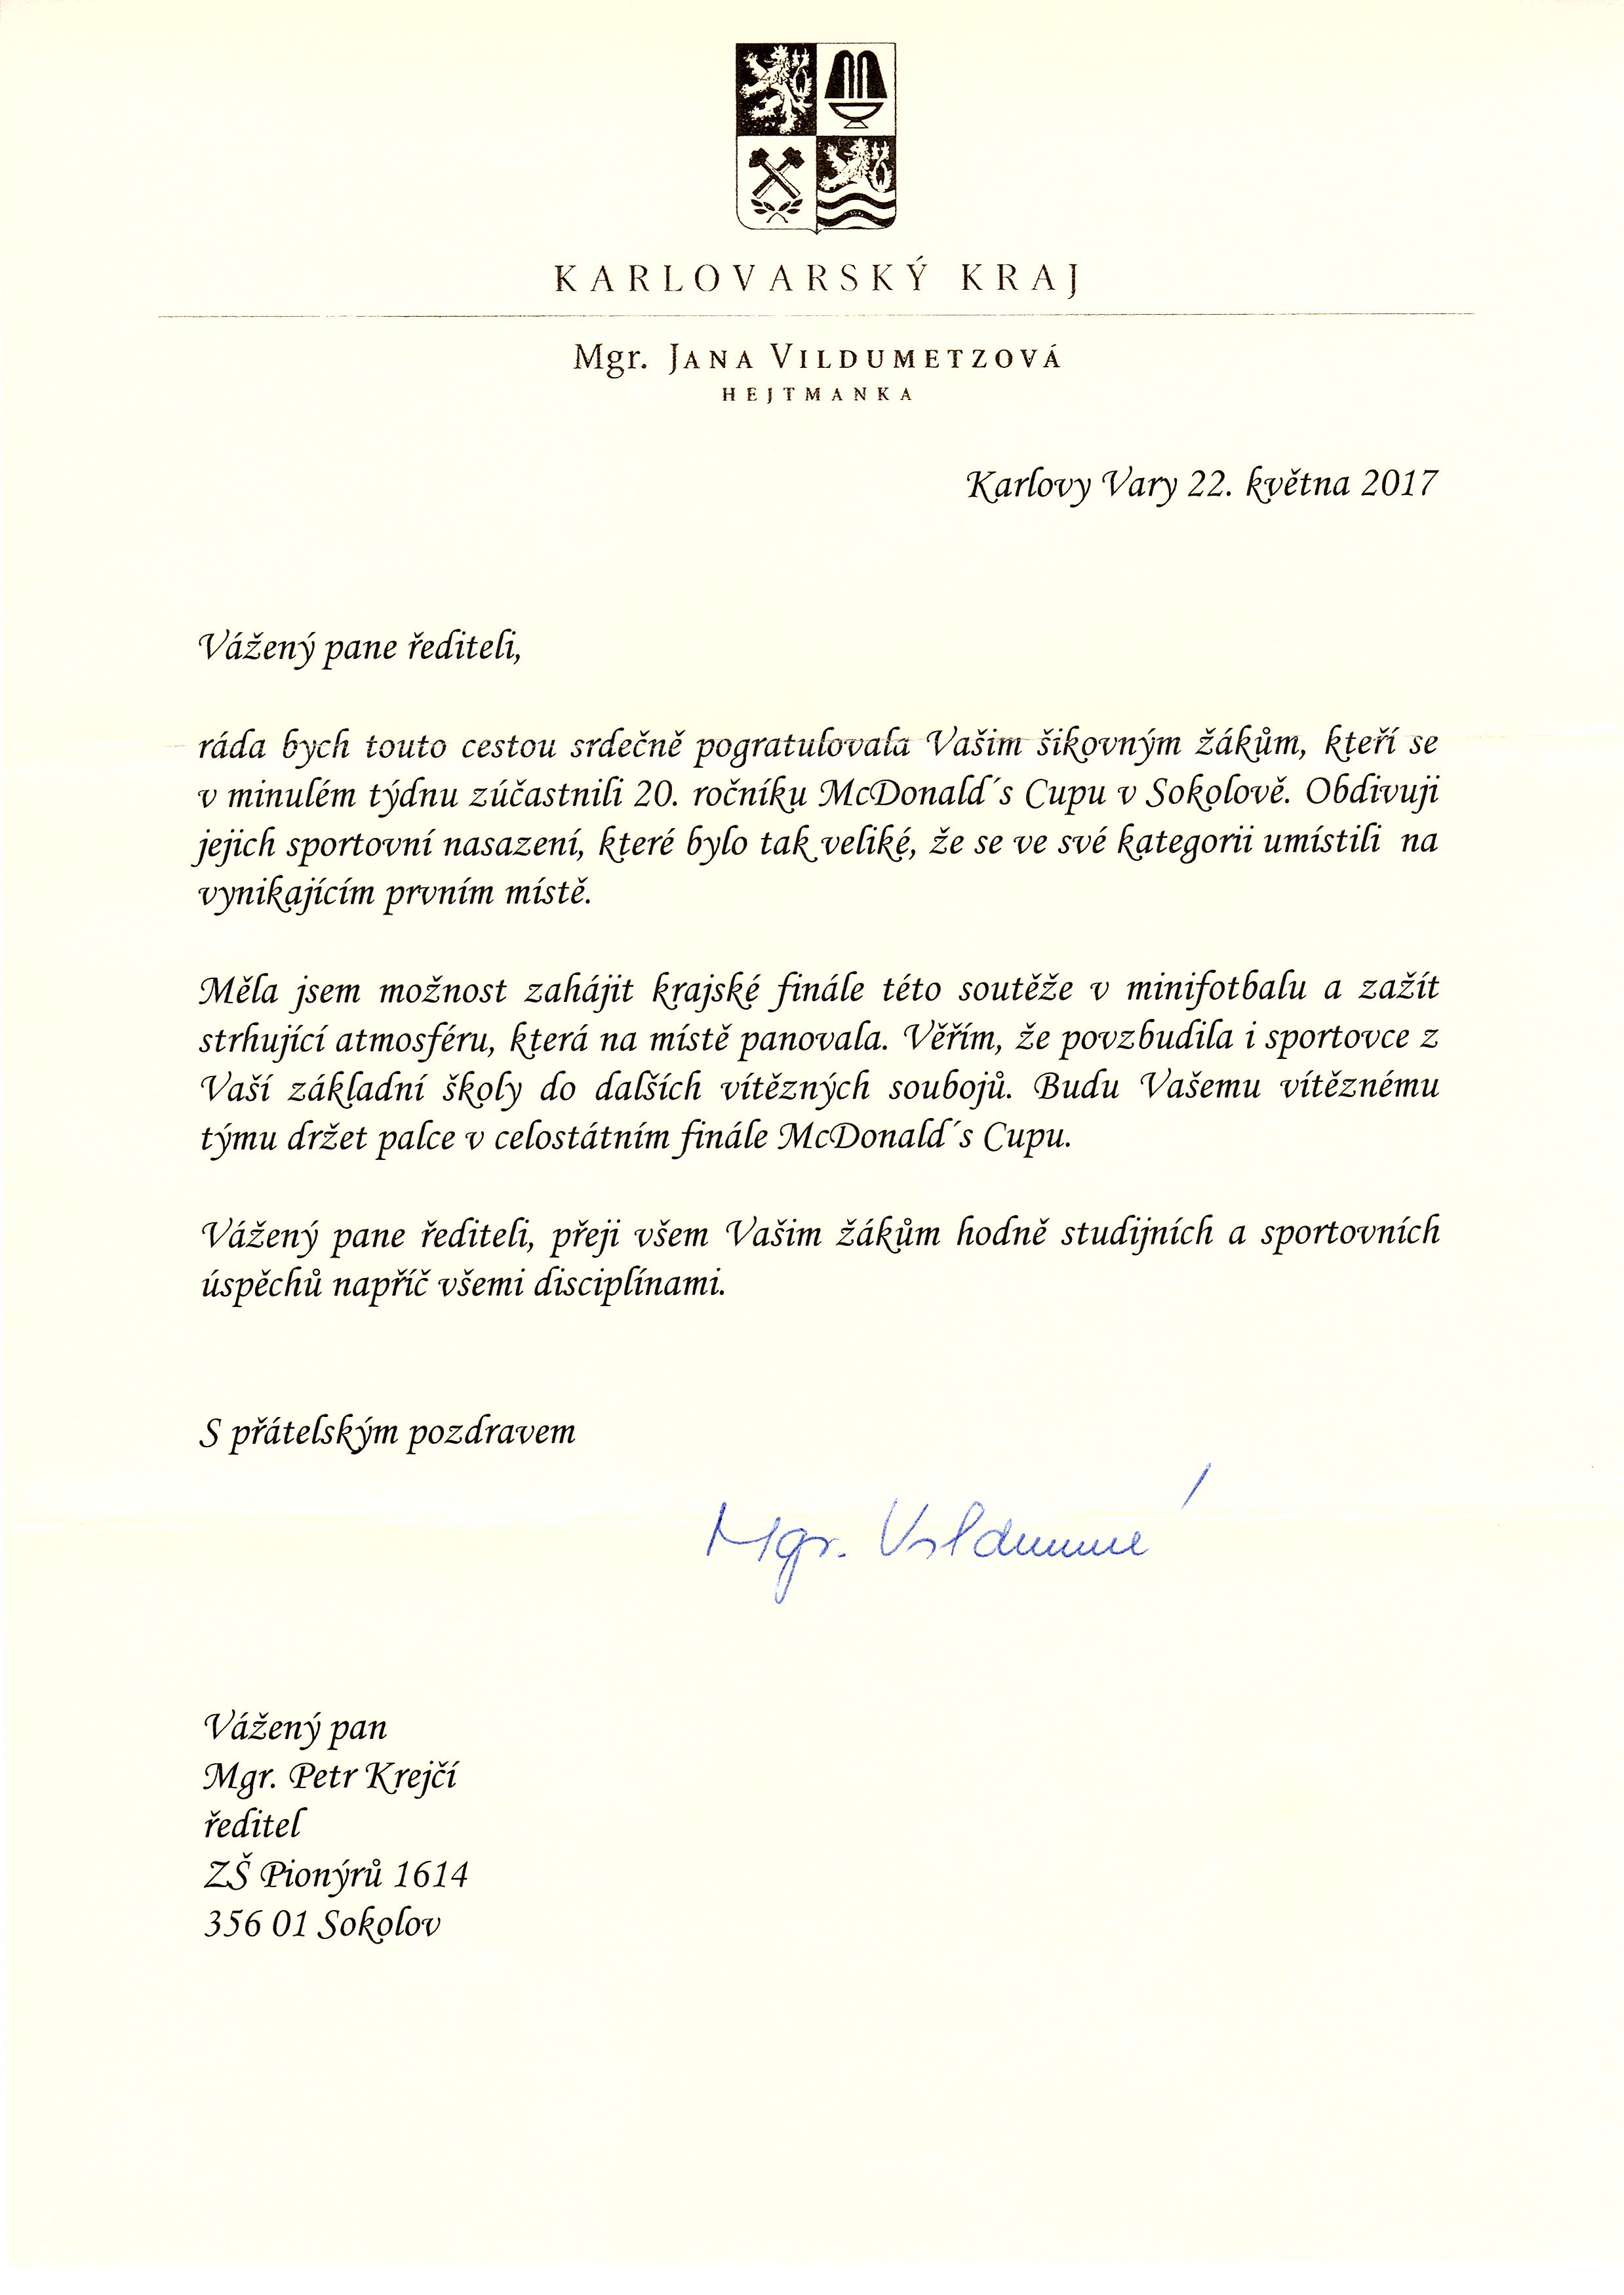 KARLOVARSKÝ KRAJ
Mgr. JANA VILDUMETZOVÁ
HEJTMANKA
Karlovy Vary 22. května 2017
Vážený pane řediteli,
ráda bych touto cestou srdečně pogratulovala Vašim šikovným žákům, kteří se
v minulém týdnu zúčastnili 20. ročníku McDonald´s Cupu v Sokolově. Obdivuji
jejich sportovní nasazení, které bylo tak veliké, že se ve své kategorii umístili na
vynikajícím prvním místě.
Měla jsem možnost zahájit krajské finále této soutěže v minifotbalu a zažít
strhující atmosféru, která na místě panovala. Věřím, že povzbudila i sportovce z
Vaší základní školy do dalších vítězných soubojů. Budu Vašemu vítěznému
týmu držet palce v celostátním finále McDonald´s Cupu.
Vážený pane řediteli, přeji všem Vašim žákům hodně studijních a sportovních
úspěchů napříč všemi disciplínami.
S přátelským pozdravem
Mgr.
Vážený pan
Mgr. Petr Krejčí
ředitel
ZŠ Pionýrů 1614
356 01 Sokolov